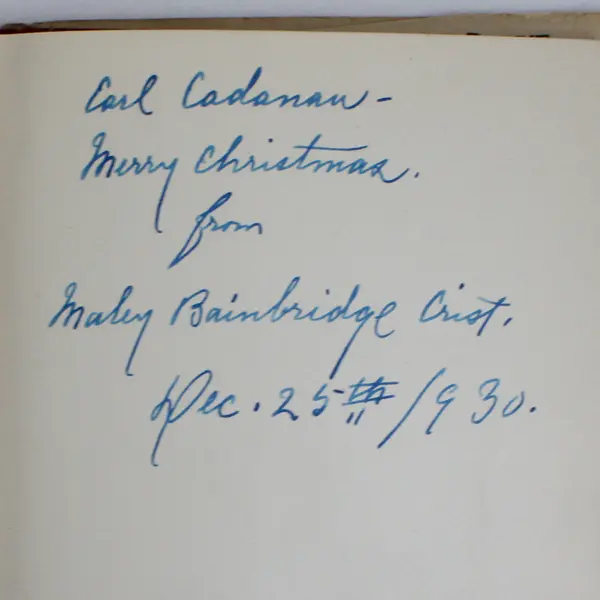 Carl Cadanau –
Merry Christmas.
from
Maley Bainbridge Crist.
Dec. 25th 1930.